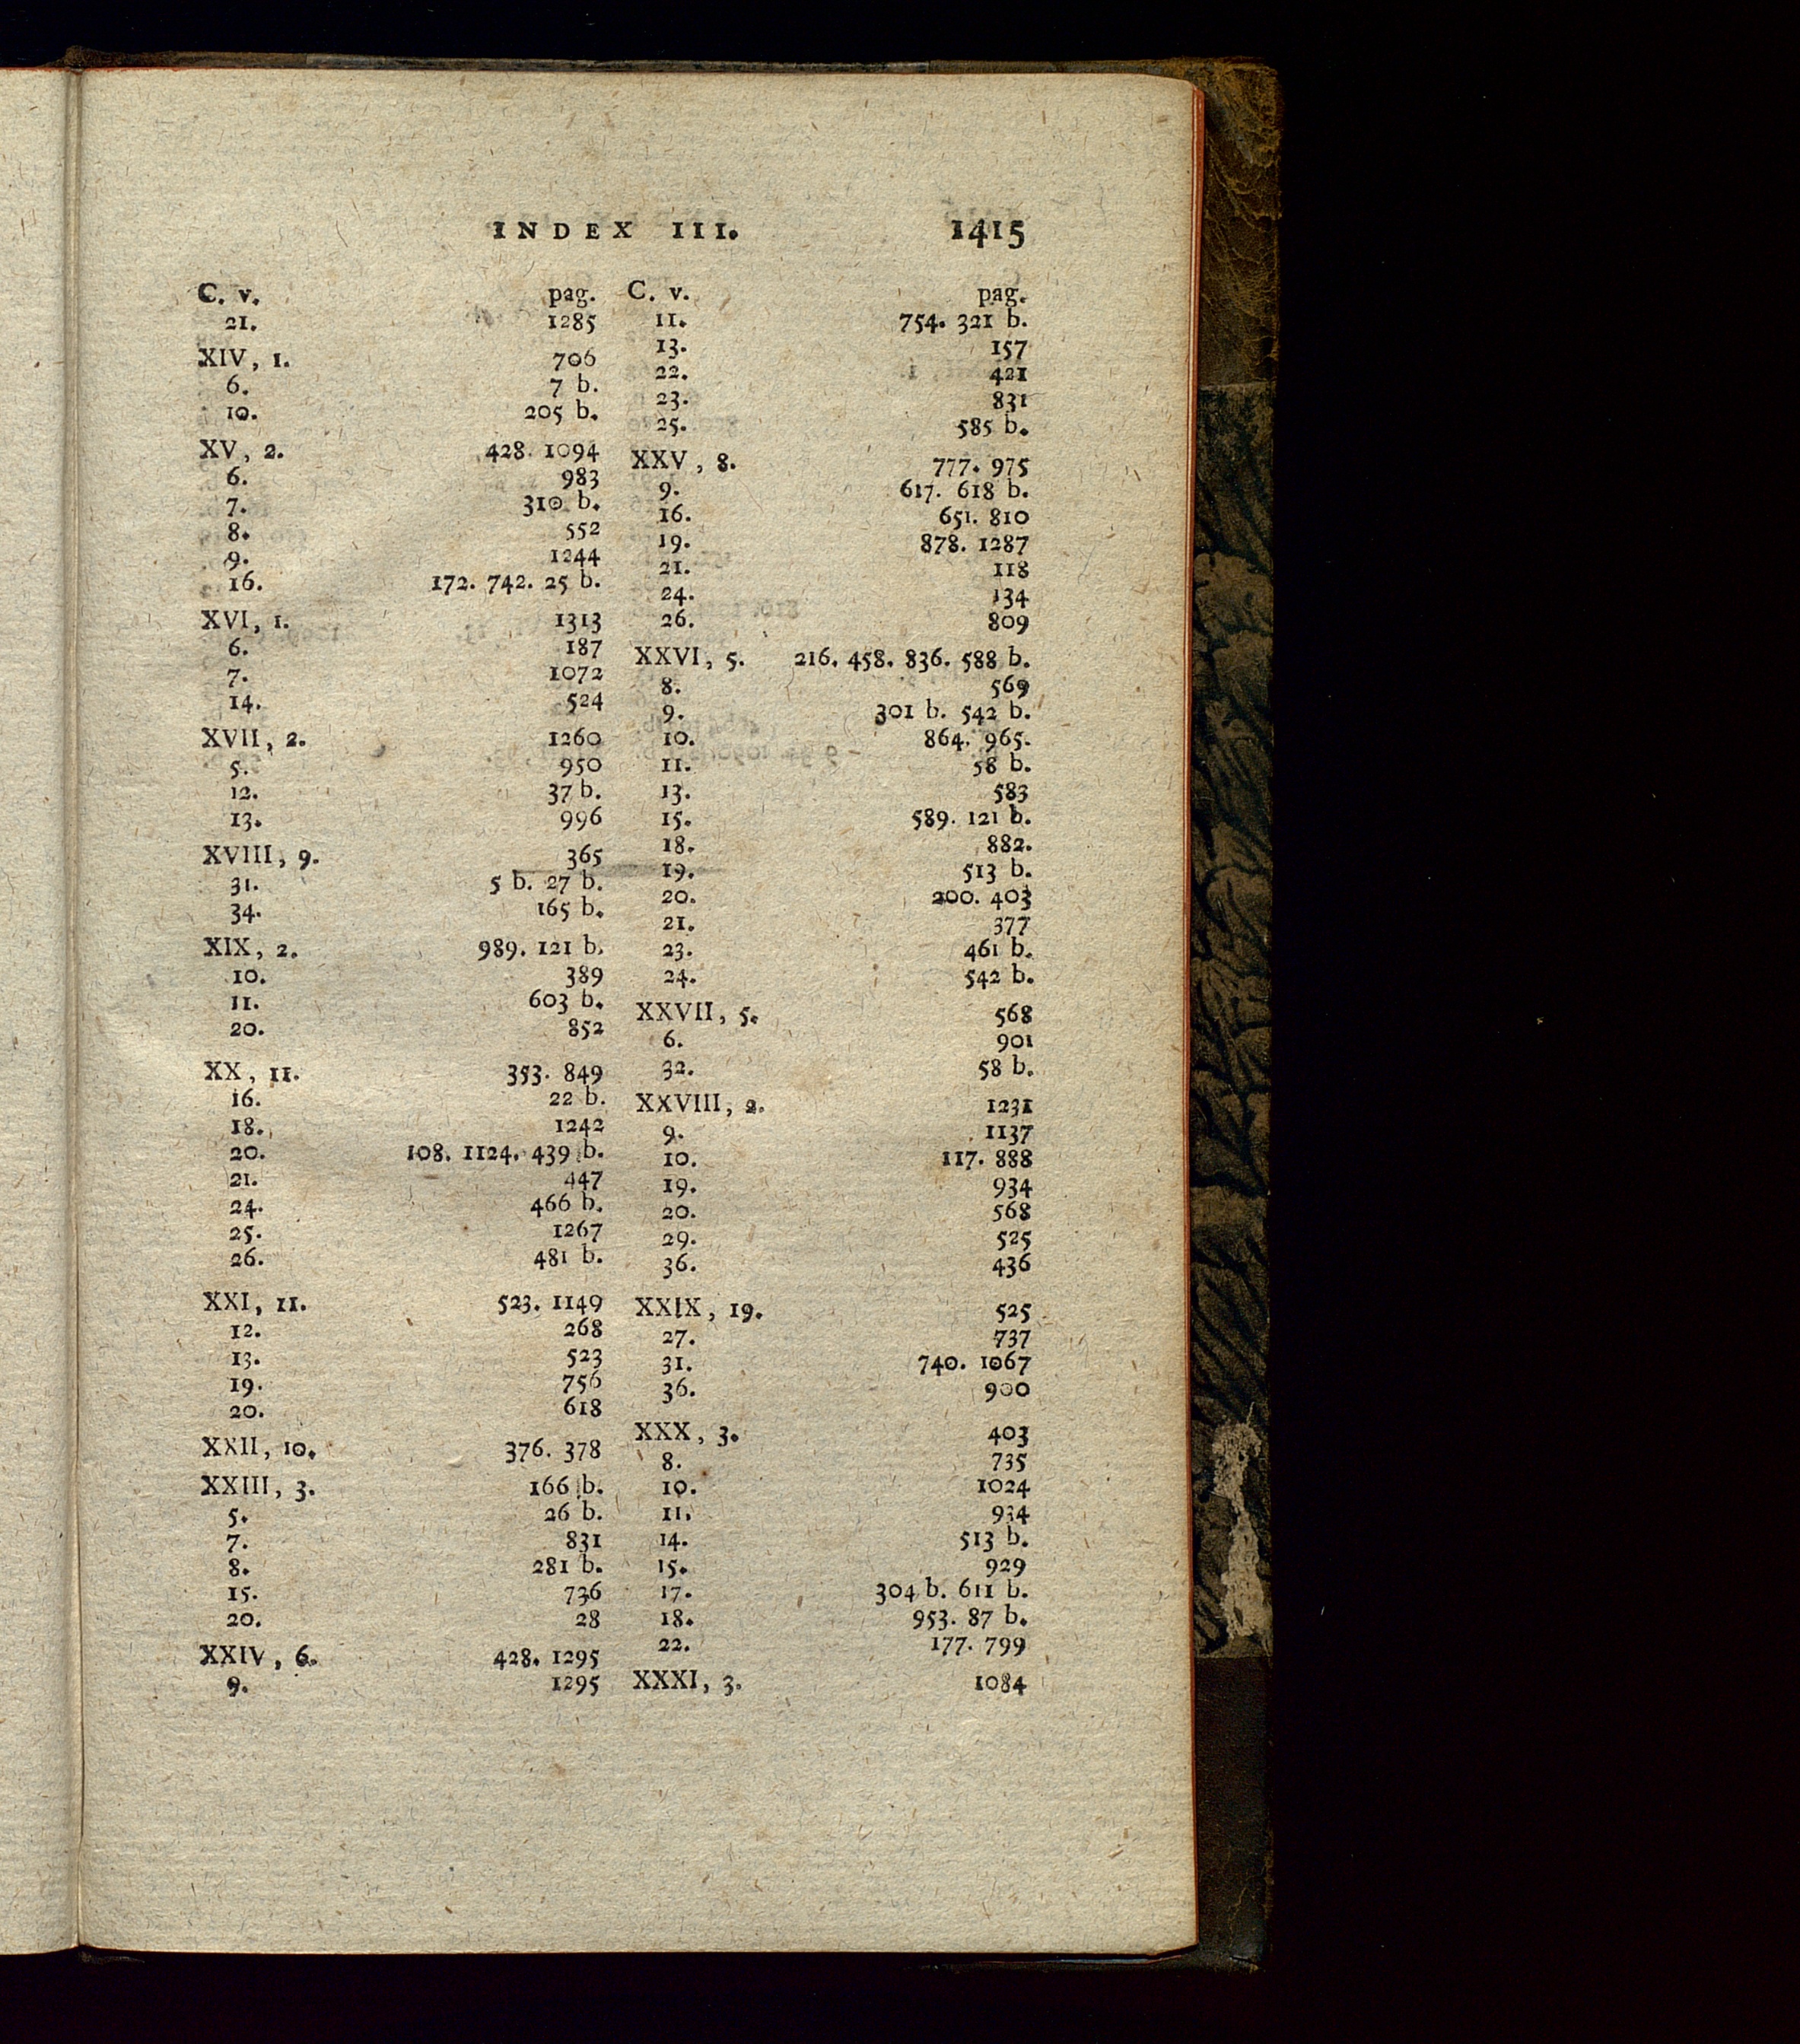 INDEX III. 1415
C. v. pag.
21. 1285
XIV, 1. 706
6. 7 b.
10. 205 b.
XV, 2. 428. 1094
6. 983
7. 310 b.
8. 552
9. 1244
16. 172. 742. 25 b.
XVI, 1. 1313
6. 187
7. 1072
14. 524
XVII, 2. 1260
5. 950
12. 37 b.
13. 996
XVIII, 9. 365
31. 5 b. 27 b.
34. 165 b.
XIX, 2. 989. 121 b.
10. 389
11. 603 b.
20. 852
XX, 11. 353. 849
16. 22 b.
18. 1242
20. 108. 1124. 439 b.
21. 447
24. 466 b.
25. 1267
26. 481 b.
XXI, 11. 523. 1149
12. 268
13. 523
19. 756
20. 618
XXII, 10. 376. 378
XXIII, 3. 166 b.
5. 26 b.
7. 831
8. 281 b.
15. 736
20. 28
XXIV, 6. 428. 1295
9. 1295
C. v. pag.
11. 754. 321 b.
13. 157
22. 421
23. 831
25. 585 b.
XXV, 8. 777. 975
9. 617. 618 b.
16. 651. 810
19. 878. 1287
21. 118
24. 134
26. 809
XXVI, 5. 216. 458. 836. 588 b.
8. 569
9. 301 b. 542 b.
10. 864. 965.
11. 58 b.
13. 583
15. 589. 121 b.
18. 882.
19. 513 b.
20. 200. 403
21. 377
23. 461 b.
24. 542 b.
XXVII, 5. 568
6. 901
32. 58 b.
XXVIII, 2. 1231
9. 1137
10. 117. 888
19. 934
20. 568
29. 525
36. 436
XXIX, 19. 525
27. 737
31. 740. 1067
36. 900
XXX, 3. 403
8. 735
10. 1024
11. 934
14. 513 b.
15. 929
17. 304 b. 611 b.
18. 953. 87 b.
22. 177. 799
XXXI, 3. 1084